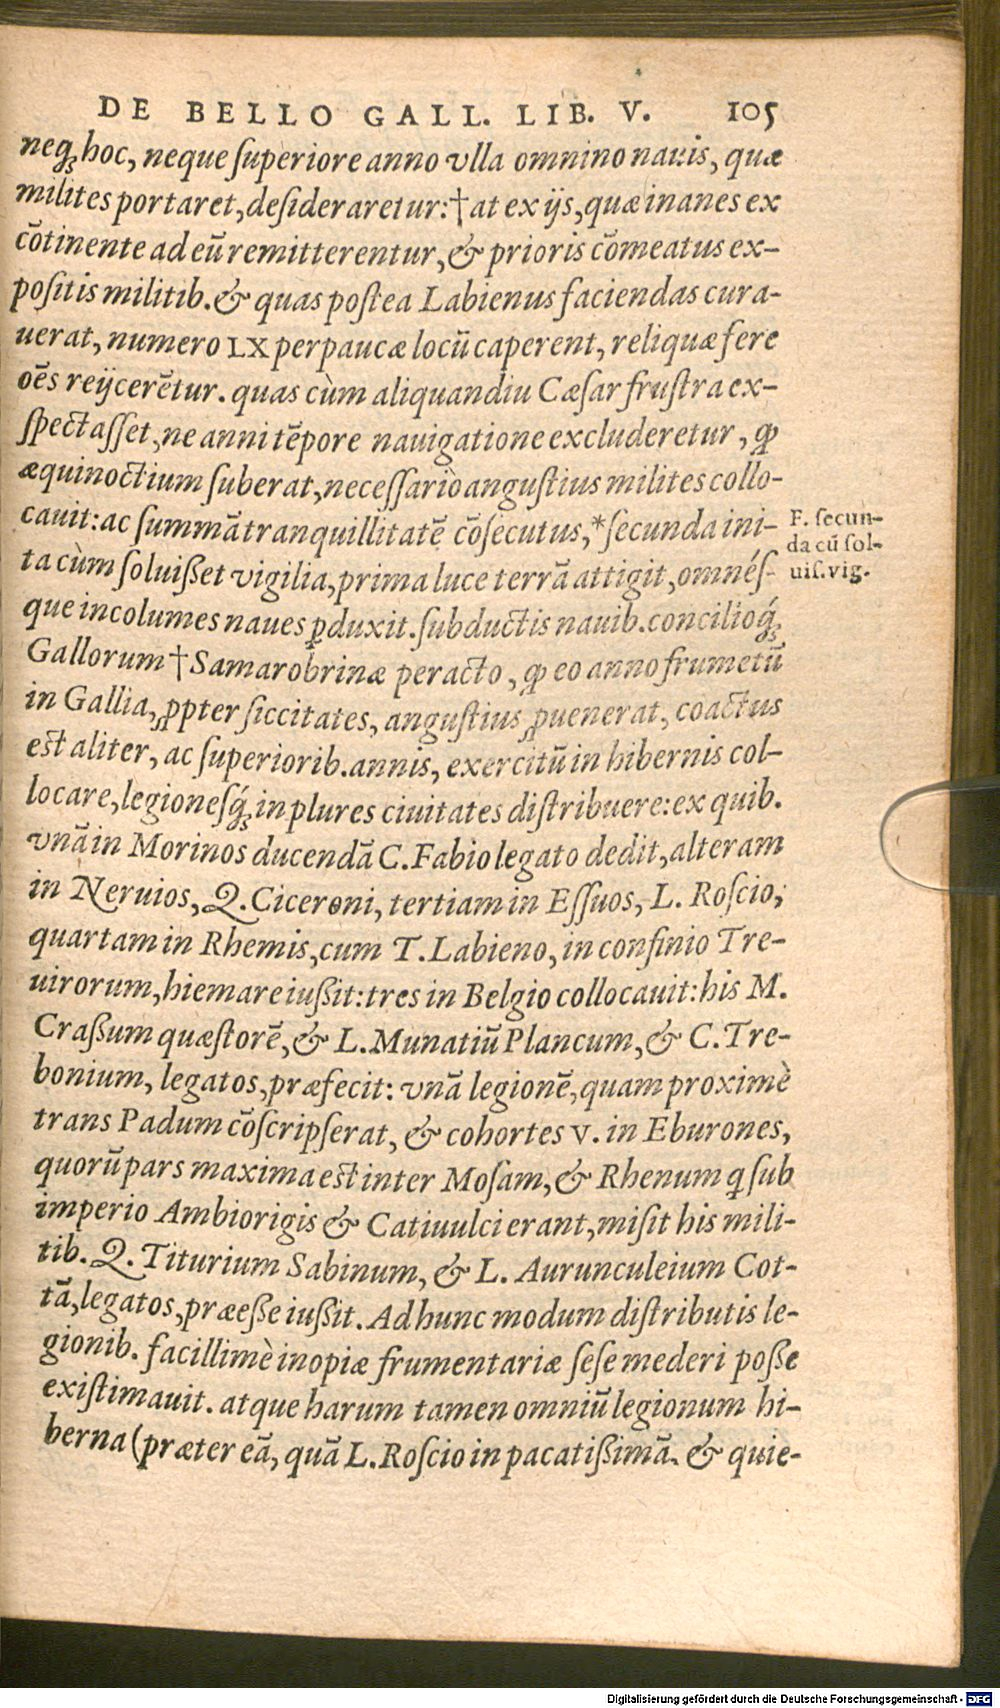 DE BELLO GALL. LIB. V. 105
neqꝫ hoc, neque ſuperiore anno vlla omnino nauis, quæ
milites portaret, deſideraretur: † at ex ijs, quæ inanes ex
cõtinente ad eũ remitterentur, & prioris cõmeatus ex-
poſitis militib. & quas poſtea Labienus faciendas cura-
uerat, numero LX perpaucæ locũ caperent, reliquæ fere
oẽs reijcerẽtur. quas cùm aliquandiu Cæſar fruſtra ex-
ſpectaſſet, ne anni tẽpore nauigatione excluderetur, ꝙ
æquinoctium ſuberat, neceſſariò anguſtius milites collo-
cauit: ac ſummã tranquillitatẽ cõſecutus, * ſecunda ini-
F. ſecun-
da cũ ſol-
uiſ. vig.
ta cùm ſoluißet vigilia, prima luce terrã attigit, omnéſ-
que incolumes naues ꝑduxit. ſubductis nauib. concilioq́ꝫ
Gallorum † Samarobrinæ peracto, ꝙ eo anno frumetũ
in Gallia, ꝓpter ſiccitates, anguſtius ꝓuenerat, coactus
est aliter, ac ſuperiorib. annis, exercitũ in hibernis col-
locare, legioneſq́ꝫ in plures ciuitates diſtribuere: ex quib.
vnã in Morinos ducendã C. Fabio legato dedit, alteram
in Neruios, Q. Ciceroni, tertiam in Eſſuos, L. Roſcio;
quartam in Rhemis, cum T. Labieno, in confinio Tre-
uirorum, hiemare iußit: tres in Belgio collocauit: his M.
Craßum quæſtorẽ, & L. Munatiũ Plancum, & C. Tre-
bonium, legatos, præfecit: vnã legionẽ, quam proximè
trans Padum cõſcripſerat, & cohortes V. in Eburones,
quorũ pars maxima est inter Moſam, & Rhenum q̃ ſub
imperio Ambiorigis & Catiuulci erant, miſit his mili-
tib. Q. Titurium Sabinum, & L. Aurunculeium Cot-
tã, legatos, præeße iußit. Ad hunc modum diſtributis le-
gionib. facillimè inopiæ frumentariæ ſeſe mederi poße
exiſtimauit. atque harum tamen omniũ legionum hi-
berna (præter eã, quã L. Roſcio in pacatißimã. & quie-
Digitalisierung gefördert durch die Deutsche Forschungsgemeinschaft - DFG